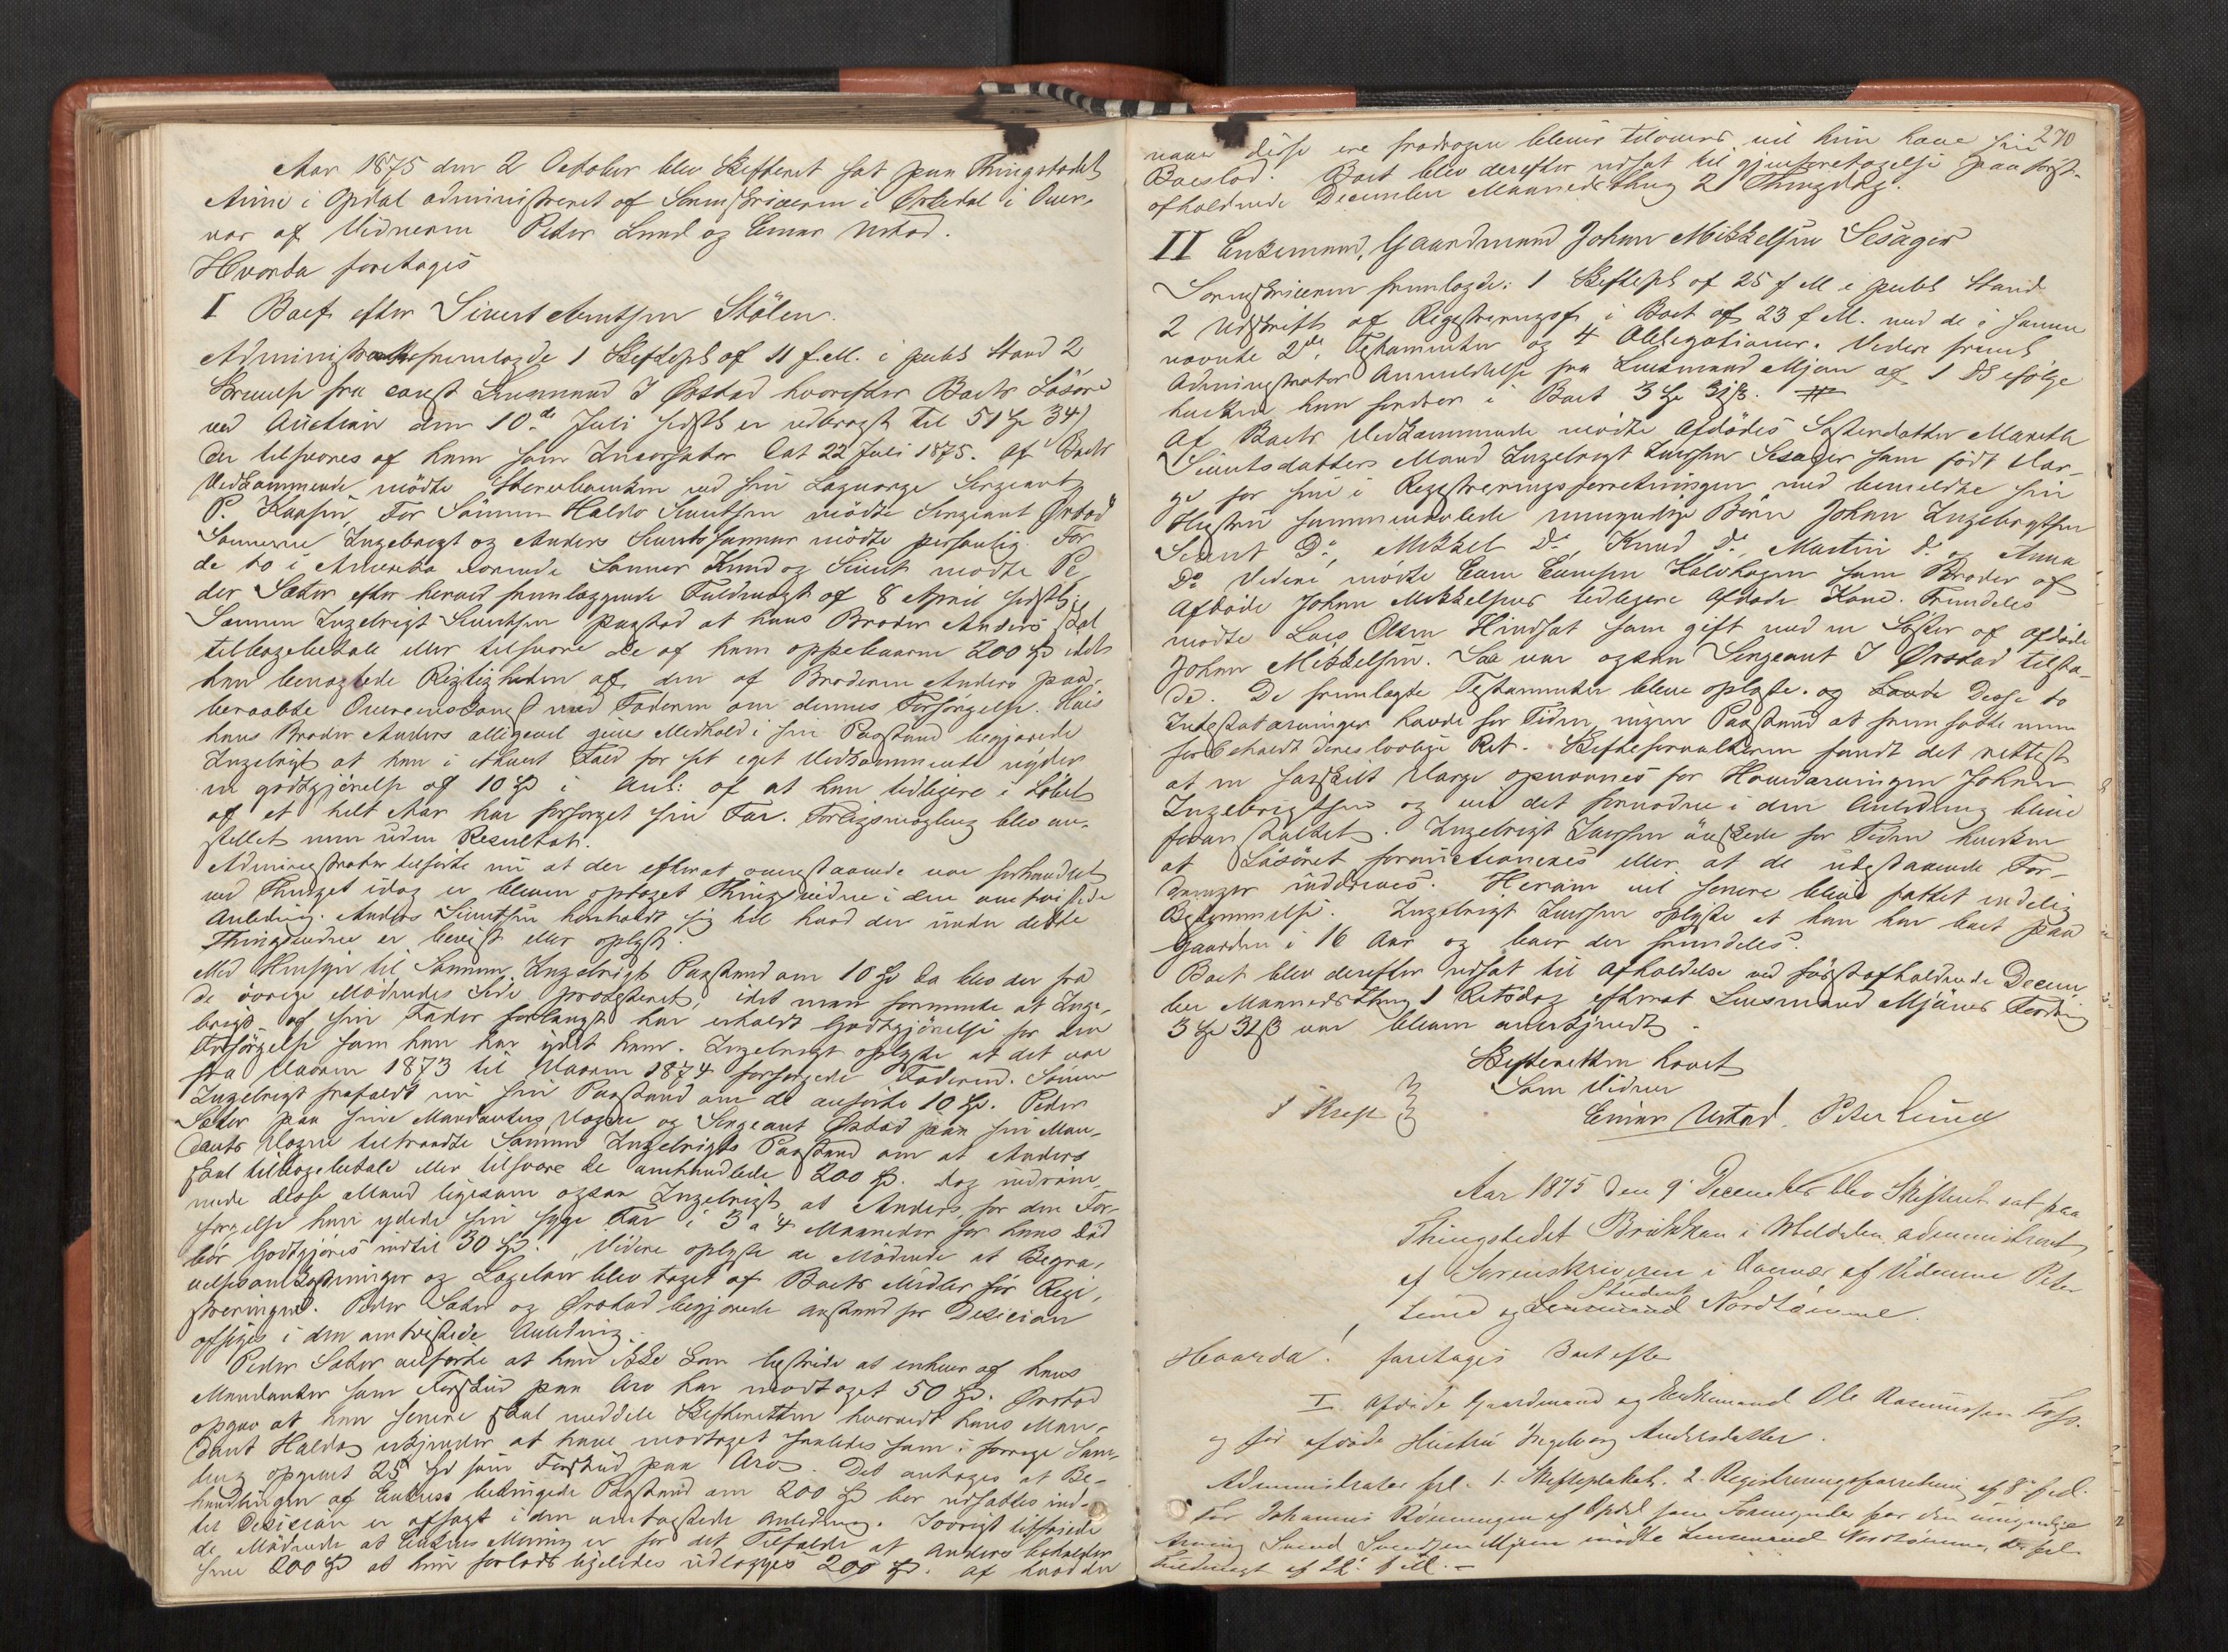 Aar 1875 den 2 October blev Skifteret sat paa Thingstedet
Aune i Opdal administreret af Sorenskriveren i Örkedal i Over-
vær af Vidnerne Peter Lund og Einar Ustad.
Hvorda foretages
I Boet efter Sivert Arntsen Stölen.
Administrator fremlagde 1 Skifteplk af 11 f. M. i publ Stand 2
Skrivelse fra const Lensmand J Örstad hvorefter Boets Lösöre
ved Auction den 10de Juli sidstl er udbragt til 51 Sp 34 s
der tilsvares af ham som Incassator Dat 22 Juli 1875. Af Boets
Vedkommende mödte Stervboenken ved sin Laugværge Sergeant
P. Kaasen, For Sönnen Haldo Sivertsen mödte Sergeant Örstad
Sönnerne Ingebrigt og Anders Sivertssönner mödte personlig. For
de to i Amerika værende Sönner Knud og Sivert mödte Pe
der Sæter efter herved fremlæggende Fuldmagt af 8 April sidstl.
Sönnen Ingebrigt Sivertsen paastod at hans Broder Anders skal
tilbagebetale eller tilsvare de af ham oppebaarne 200 Spd idet
han benægtede Rigtigheden af den af Broderen Anders paa-
beraabte Overenskomst med Faderen om dennes Forsörgelse. Hvis
hans Broder Anders alligevel gives Medhold i sin Paastand begjærede
Ingebrigt at han i ethvert Fald for sit eget Vedkommende nyder
en godtgjörelse af 10 Spd i Anl: af at han tidligere i Löbet
af et helt Aar har forsörget sin Far. Forligsmægling blev an-
stillet men uden Resultat.
Administrator tilförte nu at der efterat ovenstaaende var forhandlet
ved Thinget idag er bleven optaget Thingsvidne i den omtvistede
Anledning. Anders Sivertsen henholdt sig til hvad der under dette
Thingsvidne er bevist eller oplyst.
Med Hensyn til Sönnen Ingebrigts Paastand om 10 Spd da blev der fra
de övrige Mödendes Side protesteret, idet man formente at Inge-
brigt af sin Fader forlængst har erholdt Godtgjörelse for den
Forsörgelse som han har ydet ham. Ingebrigt oplyste at det var
fra Vaaren 1873 til Vaaren 1874 forsörgede Faderen. Sönnen
Ingebrigt frafaldt nu sin Paastand om de anförte 10 Sp. Peder
Sæter paa sine Mandanters Vegne og Sergeant Örstad paa sin Man-
dants Vegne tiltraadte Sönnen Ingebrigts Paastand om at Anders
skal tilbagebetale eller tilsvare de omhandlede 200 Sp. dog indröm-
mede disse Mænd ligesom ogsaa Ingebrigt at Anders, for den For-
sörgelse han ydede sin syge Far i 3 a 4 Maaneder för hans Död
bör Godtgjöres indtil 30 Sp. Videre oplyste de Mödende at Begra-
velsesomkostninger og Lageløn blev taget af Boets Midler för Regi-
streringen. Peder Sæter og Örstad begjærede anstand for Decision
afsiges i den omtvistede Anledning.
Peder Sæter anförte at han ikke kan bestride at enhver af hans
Mandanter som Forskud paa Arv har modtaget 50 Sp. Örstad
opgav at han senere skal meddele Skifteretten hvorvidt hans Man-
dant Haldo erkjender at have modtaget saaledes som i forrige Sam-
ling opgivet 25 Sp som Forskud paa Arv. Det antoges at Be-
handlingen af Enkens betingede Paastand om 200 Sp bör udsættes ind-
til Decision er afsagt i den omtvistede Anledning. Iövrigt tilföiede
de Mödende at Enkens Mening er for det Tilfælde at Anders beholder
sine 200 Sp at hun forlods ligeledes udlægges 200 Sp. af hvad der
270
naar disse ere fradragne bliver tilovers vil hun have sin
Boeslod. Boet blev derefter udsat til gjenforetagelse paa först-
afholdende December Maanedsthing 2 Thingdag.
II Enkemand, Gaardmand Johan Mikkelsen Sesager
Sorenskriveren fremlagde: 1 Skifteplk af 25 f M i publ Stand
2 Udskrift af Registreringsf. i Boet af 23 f. M. med de i samme
nævnte 2de Testamenter og 4 Obligationer. Videre freml
Administrator Anmeldelse fra Lensmand Mjöen af 1 ds ifölge
hvilken han fordrer i Boet 3 Sp 32 s. #
Af Boets Vedkommende mödte Afdödes Sösterdatter Mareth
Sivertsdatters Mand Ingebrigt Larssen Sesager som födt Vær-
ge for sine i Registreringsforretningen med bemeldte sin
Hustru sammenavlede umyndige Börn Johan Ingebrigtsen
Sivert Do, Mikkel Do, Knud Do, Martin Do og Anna
Do. Videre mödte Even Evensen Kalvhagen som Broder af
Afdöde Johan Mikkelsens tidligere Afdöde Kone. Fremdeles
mödte Lars Olsen Hindset som gift med en Söster af Afdöde
Johan Mikkelsen. Saa var ogsaa Sergeant J Örstad tilste-
de. De fremlagte Testamenter bleve oplæste. og havde disse to
Intestatarvinger havde for Tiden ingen Paastand at fremsætte men
forbeholdt deres lovlige Ret. Skifteforvalteren fandt det rettest
at en særskilt Værge opnævnes for Hovedarvingen Johan
Ingebrigtsen og vil det fornödne i den Anledning blive
foranstaltet. Ingebrigt Larssen önskede for Tiden hverken
at Lösöret forauctioneres eller at de udestaaende For-
dringer inddrives. Herom vil senere blive fattet endelig
Bestemmelse. Ingebrigt Larssen oplyste at han har boet paa
Gaarden i 16 Aar og boer der fremdeles.
Boet blev derefter udsat til afholdelse ved förstafholdende Decem
ber Maanedsthing 1 Retsdag efterat Lensmand Mjöens Fordring
3 Sp 32 s var bleven anerkjendt.
Skifteretten hævet
Som Vidner
J Krefst
Einar Ustad. Peter Lund
Aar 1875 den 9 December blev Skifteret sat paa
Thingstedet Brækkan i Meldalen administreret
af Sorenskriveren i Overvær af Vidnerne Peter
Student
Lund og Lensmand Nordtömme.
Hvorda! foretages Boet efter
I. Afdöde Gaardmand og Enkemand Ole Rasmussen Foss.
og för afdöde Hustru Ingeborg Andersdatter.
Administrator frl. 1. Skifteplakat. 2. Registreringsforretning af 8 f. M.
For Johannes Rönningen af Opdal som Formynder for den umyndige
Arving Svend Svendsen Mjöen mödte Lensmand Nordtömme, der frl
Fuldmagt af 22 f. M. -